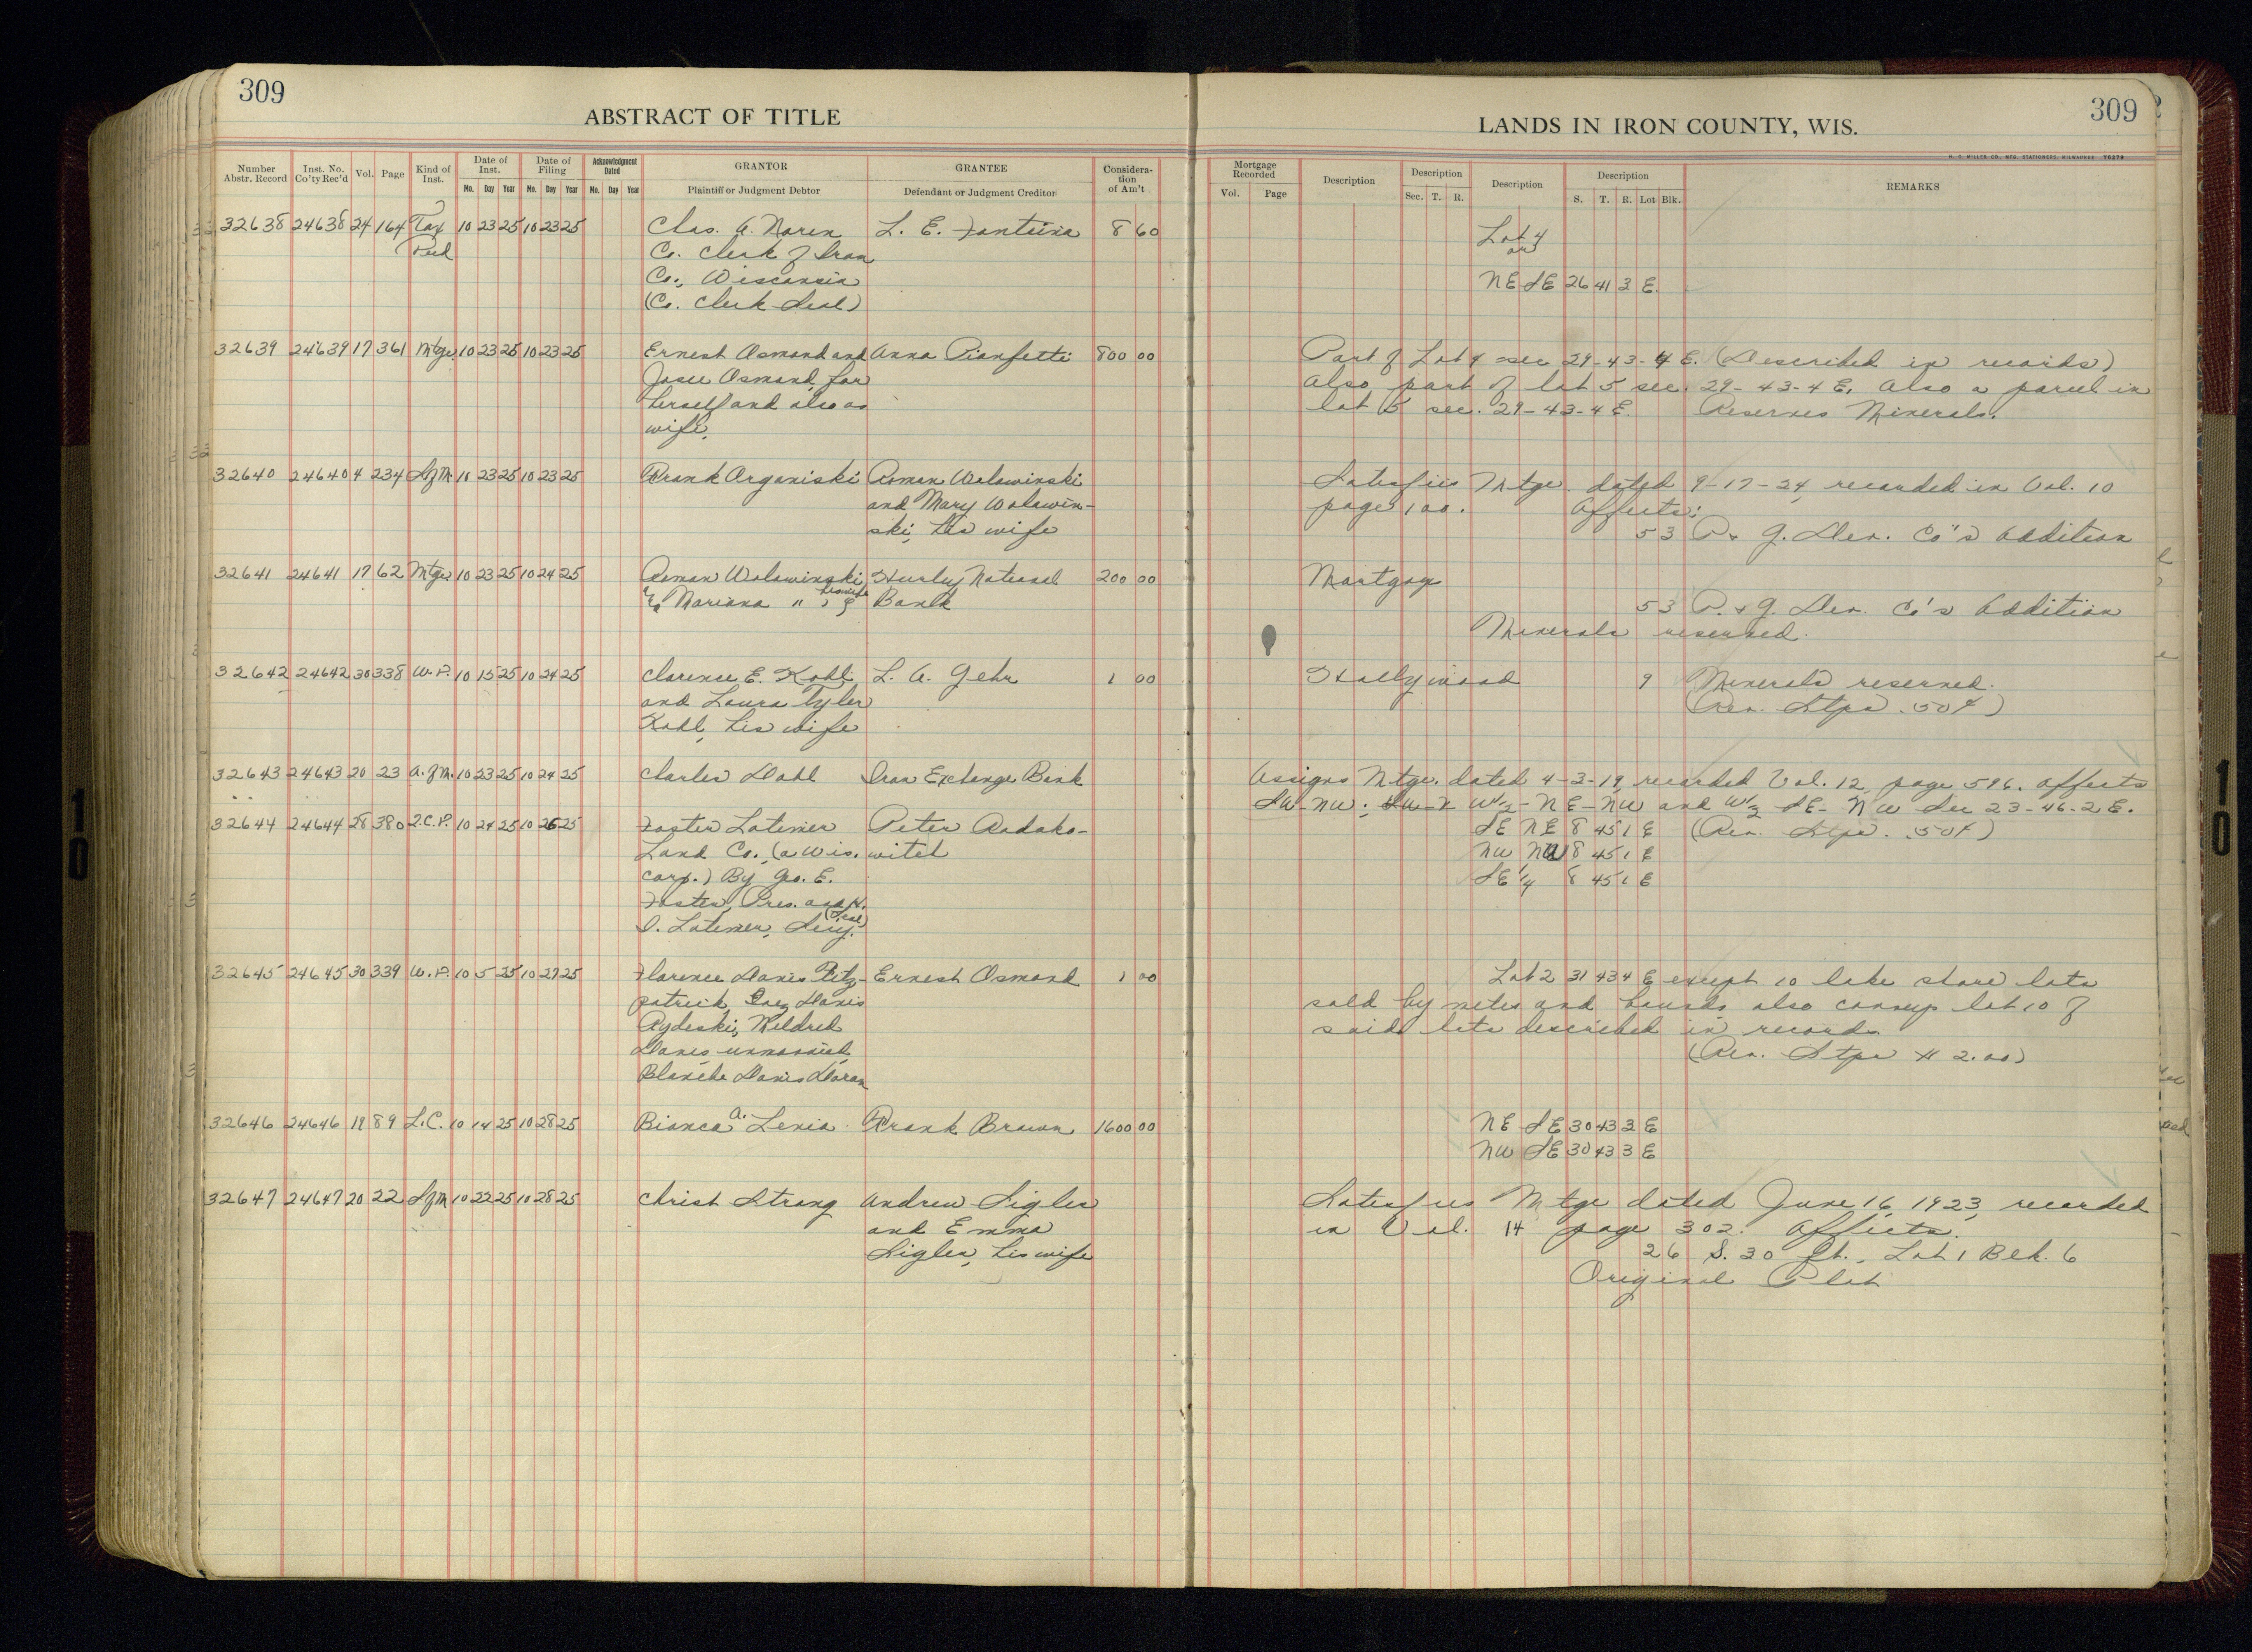 309
ABSTRACT OF TITLE
Number Abstr. Record Inst. No. Co'ty Rec'd Vol. Page Kind of Inst. Date of Inst. Date of Filing Acknowledgment Dated GRANTOR GRANTEE Consideration of Am't
Mo. Day Year Mo. Day Year Mo. Day Year Plaintiff or Judgment Debtor Defendant or Judgment Creditor
32638 24638 24 164 Tax 10 23 25 10 23 25 Chas. A. Noren L. E. 8 60
Deed Co. Clerk of Iron
Co., Wisconsin
(Co. Clerk Seal)
32639 24639 17 361 Mtge. 10 23 25 10 23 25 Ernest Osmond and Anna Pianfetti 800 00
Josie Osmond, for
herself and also as
wife.
32640 24640 4 234 S of M. 10 23 25 10 23 25 Frank Organiski Roman Wolawinski
and Mary Wolawin-
ski, his wife
32641 24641 17 62 Mtge 10 23 25 10 24 25 Roman Wolawinski Hurley National 200 00
& Mariana " , his wife Bank
32642 24642 30 338 W.D. 10 15 25 10 24 25 Clarence E. Kohl L. A. Gehr 1 00
and Laura Tyler
Kohl, his wife
32643 24643 20 23 A. of M. 10 23 25 10 24 25 Charles Dahl Iron Exchange Bank
32644 24644 28 380 Q.C.D. 10 24 25 10 26 25 Foster Latimer Peter Radako-
Land Co., (a Wis. witch
corp.) By Geo. E.
Foster, Pres. and H.
I. Latimer, Secy. (Seal)
32645 24645 30 339 W.D. 10 5 25 10 27 25 Florence Davis Fitz- Ernest Osmond 1 00
patrick, Inez Davis
Rydeski, Mildred
Davis unmarried,
Blanche Davis Doran
32646 24646 19 89 L.C. 10 14 25 10 28 25 Bianca A. Lenia Frank Brown 1600 00
32647 24647 20 22 S of M 10 22 25 10 28 25 Christ Strong Andrew Sigler
and Emma
Sigler, his wife
309
LANDS IN IRON COUNTY, WIS.
H. C. MILLER CO., MFG. STATIONERS, MILWAUKEE Y0279
Mortgage Recorded Description Description Description Description REMARKS
Vol. Page Sec. T. R. S. T. R. Lot Blk.
Lot 4
or
NE SE 26 41 3 E.
Part of Lot 4 sec 29-43-4 E. (Described in records)
Also part of lot 5 sec. 29-43-4 E. Also a parcel in
lot 5 sec. 29-43-4 E. Reserves Minerals.
Satisfies Mtge. dated 9-17-24, recorded in Vol. 10
page 100. Affects:
53 P. & G. Dev. Co's Addition
Mortgage
53 P. & G. Dev. Co's Addition
Minerals reserved.
Hollywood 9 Minerals reserved.
(Rev. Stps .50¢)
Assigns Mtge. dated 4-3-19, recorded Vol. 12, page 596. Affects
SW-NW; W½-NE-NW and W½ SE-NW Sec 23-46-2 E.
SE NE 8 45 1 E (Rev. Stps. .50¢)
NW NW 8 45 1 E
SE ¼ 8 45 1 E
Lot 2 31 43 4 E except 10 lake shore lots
sold by metes and bounds, also conveys lot 10 of
said lots described in records.
(Rev. Stps $ 2.00)
NE SE 30 43 3 E
NW SE 30 43 3 E
Satisfies Mtge dated June 16, 1923, recorded
in Vol. 14 page 302. Affects.
26 S. 30 ft., Lot 1 Blk. 6
Original Plat